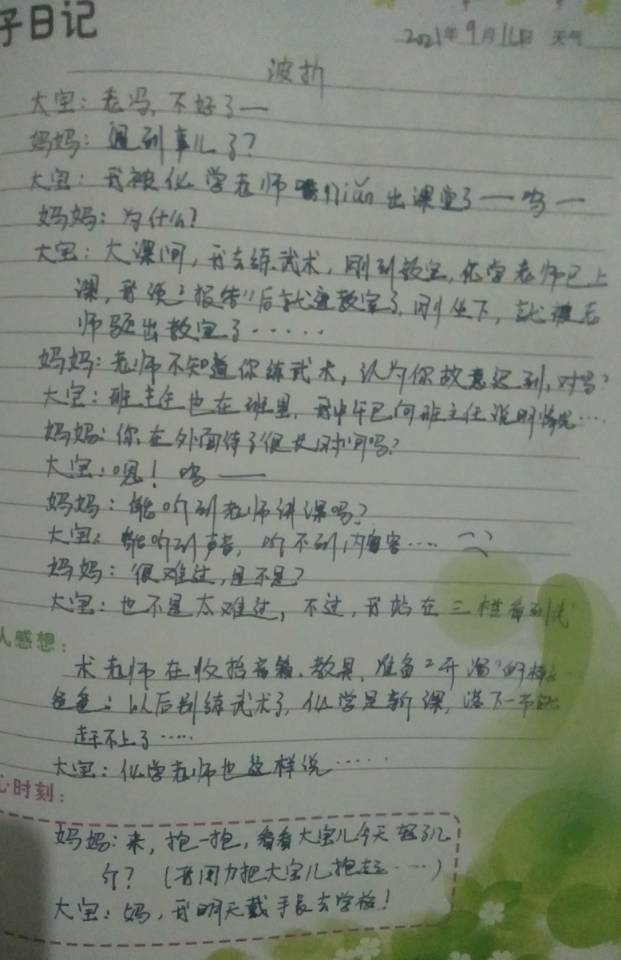 子日记
2021年9月16日 天气
波折
大宝：老冯，不好了—
妈妈：遇到事儿了？
大宝：我被化学老师 niǎn 出课堂了——呜—
妈妈：为什么？
大宝：大课间，我去练武术，刚到教室，化学老师已上
课，我喊"报告"后就进教室了，刚坐下，就被老
师 出教室了……
妈妈：老师不知道你练武术，认为你故意迟到，对吗？
大宝：班主任也在班里，我中午已向班主任说明情况…
妈妈：你在外面待了很长时间吗？
大宝：嗯！呜——
妈妈：能听到老师讲课吗？
大宝：能听到声音，听不到内容……
妈妈：很难过，是不是？
大宝：也不是太难过，不过，我站在三楼看到武
人感想：
术老师在收拾音箱、教具，准备"开溜"的样
爸爸：以后别练武术了，化学是新课，落下一节就
赶不上了……
大宝：化学老师也这样说……
心时刻：
妈妈：来，抱一抱，看看大宝儿今天 了几
斤？（我用力把大宝儿抱起……）
大宝：妈，我明天戴手表去学校！